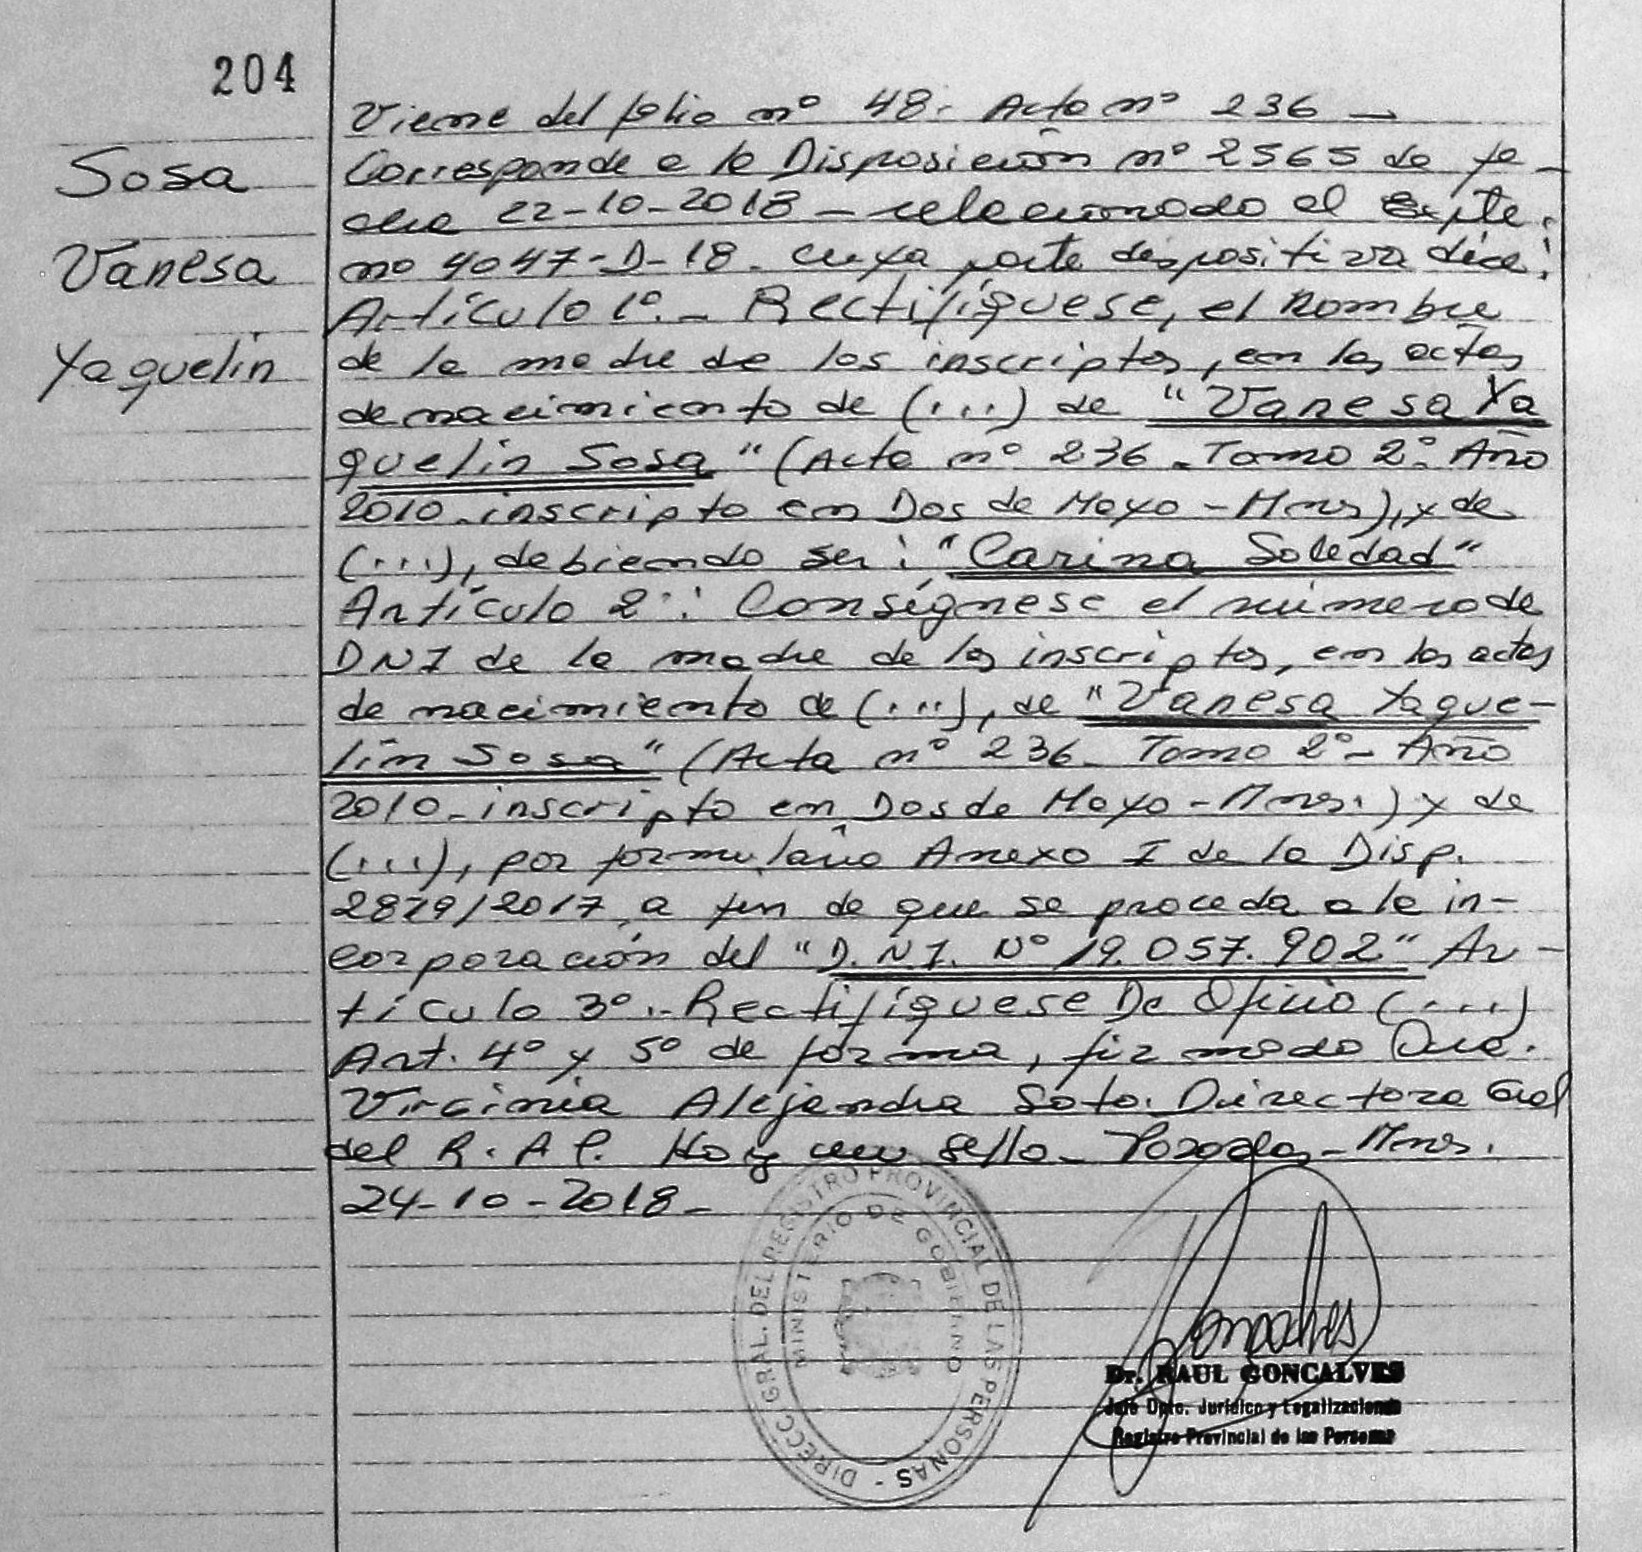 204
Sosa
Vanesa
Yaquelin
Viene del folio nº 48. Acta nº 236 -
Corresponde a la Disposición nº 2565 de fe-
cha 22-10-2018 - relacionado al Expte.
nº 4047-D-18. cuya parte dispositiva dice:
Artículo 1º.- Rectifíquese, el nombre
de la madre de los inscriptos, en las actas
de nacimiento de (...) de "Vanesa Ya
quelin Sosa" (Acta nº 236 - Tomo 2º. Año
2010 - inscripto en Dos de Mayo - Mnes), y de
(...), debiendo ser: "Carina Soledad"
Artículo 2º: Consígnese el número de
DNI de la madre de los inscriptos, en las actas
de nacimiento de (...), de "Vanesa Yaque-
lin Sosa" (Acta nº 236 - Tomo 2º - Año
2010 - inscripto en Dos de Mayo - Mnes.) y de
(...), por formulario Anexo I de la Disp.
2879/2017, a fin de que se proceda a la in-
corporación del "D.N.I. Nº 19.057.902" Ar-
tículo 3º.- Rectifíquese De Oficio (....)
Art. 4º y 5º de forma, firmado Dra.
Virginia Alejandra Soto. Directora Gral
del R.P. Hay un sello - Posadas - Mnes.
24-10-2018 -
DIRECC. GRAL. DEL REGISTRO PROVINCIAL DE LAS PERSONAS -
MINISTERIO DE GOBIERNO
Goncalves
Dr. RAUL GONCALVES
Jefe Dpto. Jurídico y Legalizaciones
Registro Provincial de las Personas